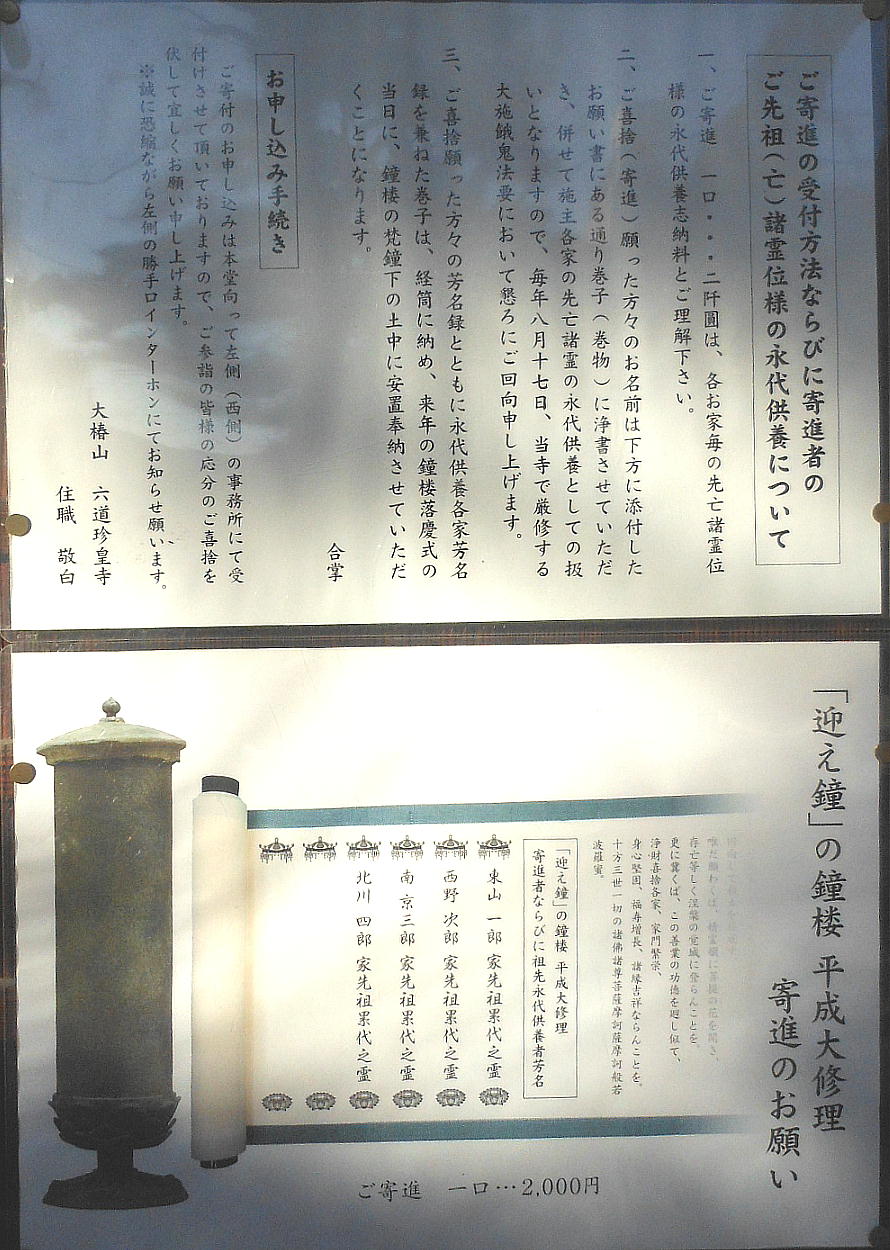 ご寄進の受付方法ならびに寄進者の
ご先祖(亡)諸霊位様の永代供養について
一、ご寄進　一口・・・二阡圓は、各お家毎の先亡諸霊位
様の永代供養志納料とご理解下さい。
二、ご喜捨(寄進)願った方々のお名前は下方に添付した
お願い書にある通り巻子(巻物)に浄書させていただ
き、併せて施主各家の先亡諸霊の永代供養としての扱
いとなりますので、毎年八月十七日、当寺で厳修する
大施餓鬼法要において懇ろにご回向申し上げます。
三、ご喜捨願った方々の芳名録とともに永代供養各家芳名
録を兼ねた巻子は、経筒に納め、来年の鐘楼落慶式の
当日に、鐘楼の梵鐘下の土中に安置奉納させていただ
くことになります。
合掌
お申し込み手続き
ご寄付のお申し込みは本堂向って左側(西側)の事務所にて受
付けさせて頂いておりますので、ご参詣の皆様の応分のご喜捨を
伏して宜しくお願い申し上げます。
※誠に恐縮ながら左側の勝手口インターホンにてお知らせ願います。
大椿山　六道珍皇寺
住職　敬白
「迎え鐘」の鐘楼 平成大修理
寄進のお願い
存亡等しく涅槃の覚城に登らんことを。
更に冀くば、この善業の功徳を廻し似て、
浄財喜捨各家、家門繁栄、
身心堅固、福寿増長、諸縁吉祥ならんことを。
十方三世一切の諸佛諸尊菩薩摩訶薩摩訶般若
波羅蜜。
「迎え鐘」の鐘楼 平成大修理
寄進者ならびに祖先永代供養者芳名
東山 一郎 家先祖累代之霊
西野 次郎 家先祖累代之霊
南 京三郎 家先祖累代之霊
北川 四郎 家先祖累代之霊
ご寄進　一口…2,000円